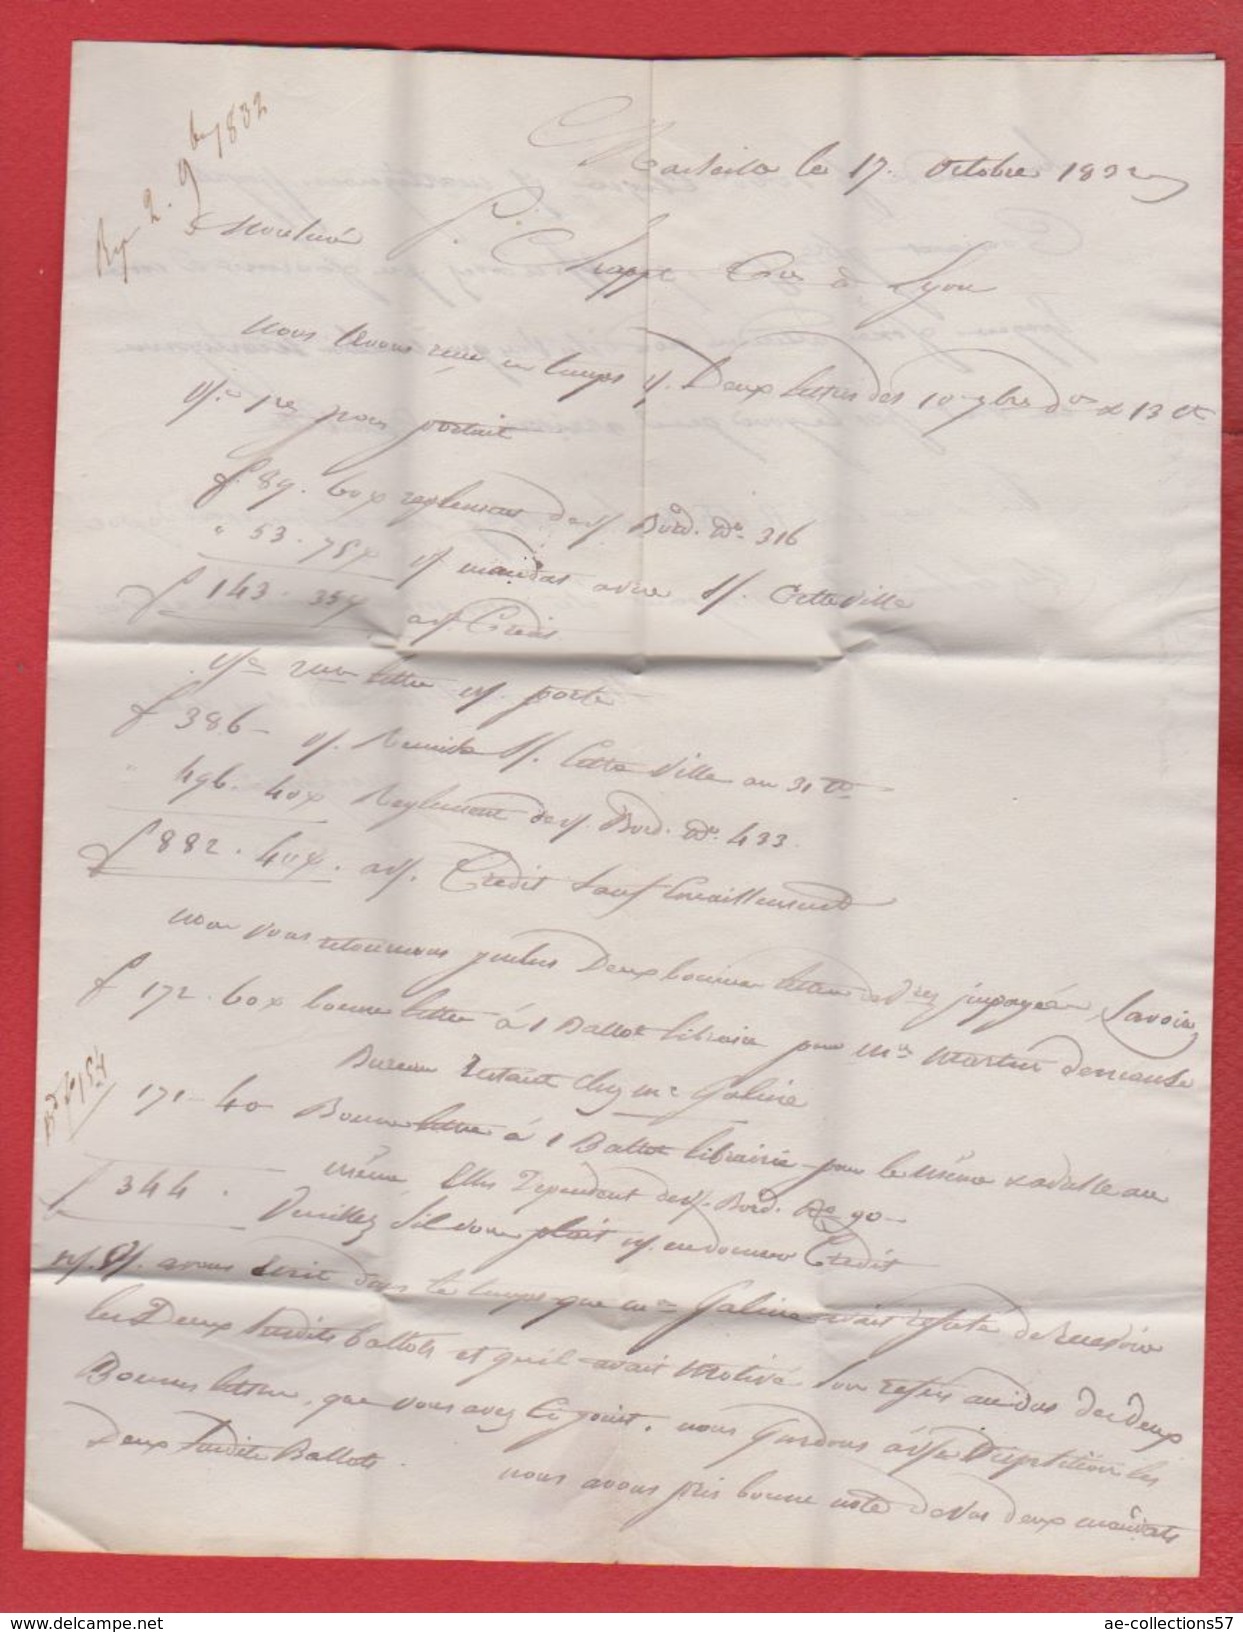 2. 9bre 1832
Marseille le 17. Octobre 1832
Monsieur
Frappe à Lyon
Nous avons reçu en temps v/. Deux lettres des 10 & 13 Ct
v/. pre pour portait
f. 89. 60 x reglement de v/. Bord. No. 316
" 53. 75 x v/ mandat s/. Cette Ville
f 143. 35 x a v/. Credit
v/. lettre n/. porte
f 386 - v/. Remise s/. Cette Ville au 31 Ct
" 496. 40 x Reglement de v/. Bord. No. 433.
f 882. 40 x. a v/. Credit Sauf Encaissement
Nous vous retournons Deux bonnes lettres impayées Savoir
f 172. 60 x bonne lettre à 1 Ballot librairie pour Mr Martin
Bureau Restant chez Mr Galine
171 - 40 Bonne lettre à 1 Ballot librairie pour le même & adresse au
même, Elles Dependent de v/. Bord. No 90 -
f 344. Veuillez s'il vous plait n/. en donner Credit
n/. v/. avons Ecrit dans le temps que Mr Galine avait refusé de Recevoir
les Deux susdits ballots et qu'il avait Motivé son refus au dos des deux
Bonnes lettres, que vous avez Ci joint. nous Gardons à v/. Disposition les
Deux susdits Ballots. nous avons pris bonne note de vos deux mandats
ae-collections57